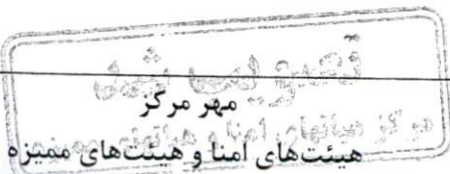 تصویب شد
مهر مرکز
هیئت‌های امنا و هیئت‌های ممیزه